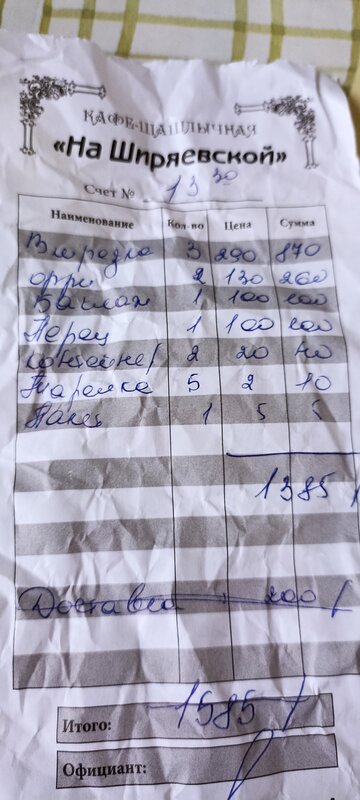 КАФЕ-ШАШЛЫЧНАЯ
«На Ширяевской»
Счет № 13 30
Наименование Кол-во Цена Сумма
Вырезка 3 290 870
фри 2 130 260
Баклаж 1 100 100
Перец 1 100 100
Контейнер 2 20 40
Тарелка 5 2 10
Пакет 1 5 5
1385
Доставка 200
Итого: 1585
Официант: